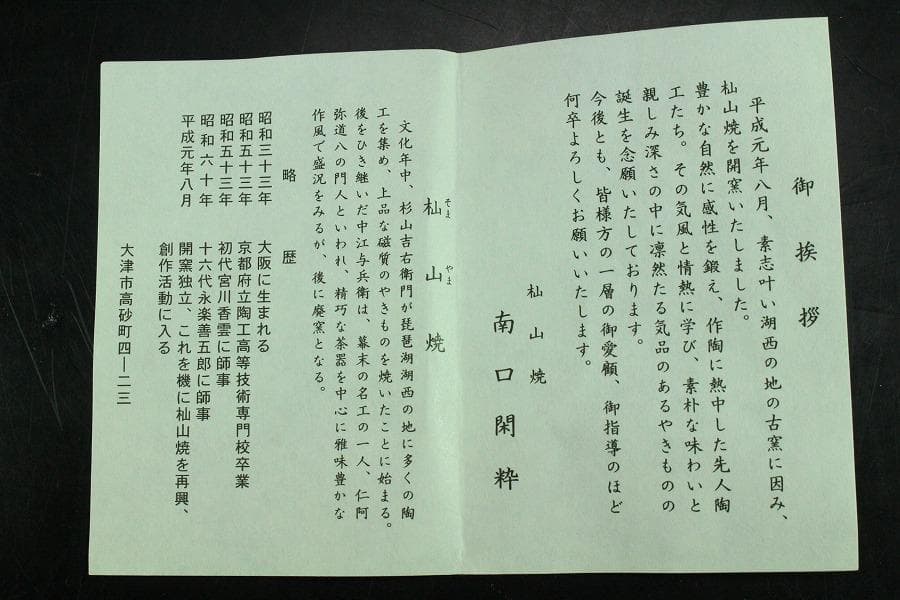 御挨拶
平成元年八月、素志叶い湖西の地の古窯に因み、
杣山焼を開窯いたしました。
豊かな自然に感性を鍛え、作陶に熱中した先人陶
工たち。その気風と情熱に学び、素朴な味わいと
親しみ深さの中に凛然たる気品のあるやきものの
誕生を念願いたしております。
今後とも、皆様方の一層の御愛顧、御指導のほど
何卒よろしくお願いいたします。
杣山焼
南口閑粋
杣山焼
そまやま
文化年中、杉山吉右衛門が琵琶湖湖西の地に多くの陶
工を集め、上品な磁質のやきものを焼いたことに始まる。
後をひき継いだ中江与兵衛は、幕末の名工の一人、仁阿
弥道八の門人といわれ、精巧な茶器を中心に雅味豊かな
作風で盛況をみるが、後に廃窯となる。
略歴
昭和三十三年 大阪に生まれる
昭和五十三年 京都府立陶工高等技術専門校卒業
昭和五十三年 初代宮川香雲に師事
昭和六十年 十六代永楽善五郎に師事
平成元年八月 開窯独立、これを機に杣山焼を再興、
創作活動に入る
大津市高砂町四―二三